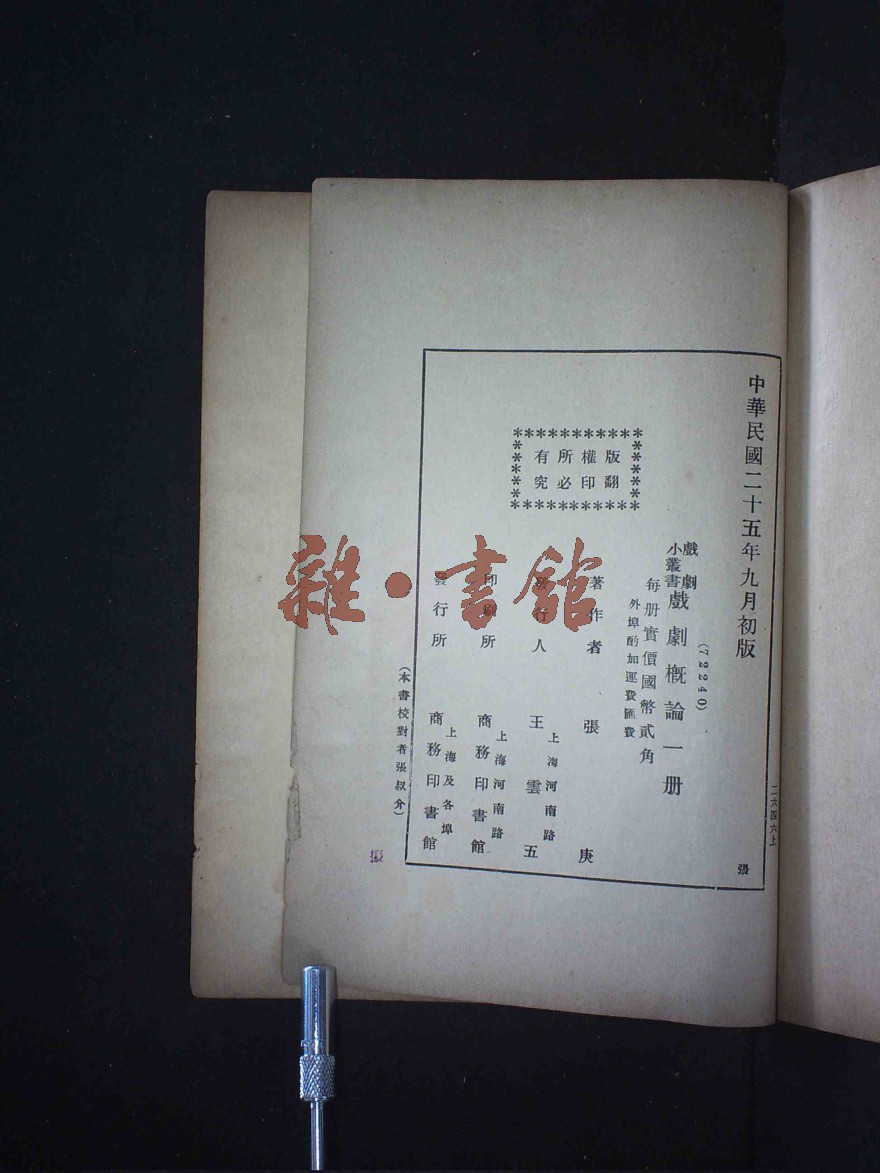 中華民國二十五年九月初版
二六四六上
張
(72240)
戲劇
小叢書
戲劇概論一册
每册實價國幣貳角
外埠酌加運費匯費
版權所有
翻印必究
著作者 張庚
上海河南路
發行人 王雲五
上海河南路
印刷所 商務印書館
上海及各埠
發行所 商務印書館
(本書校對者張叔介)
雜·書館